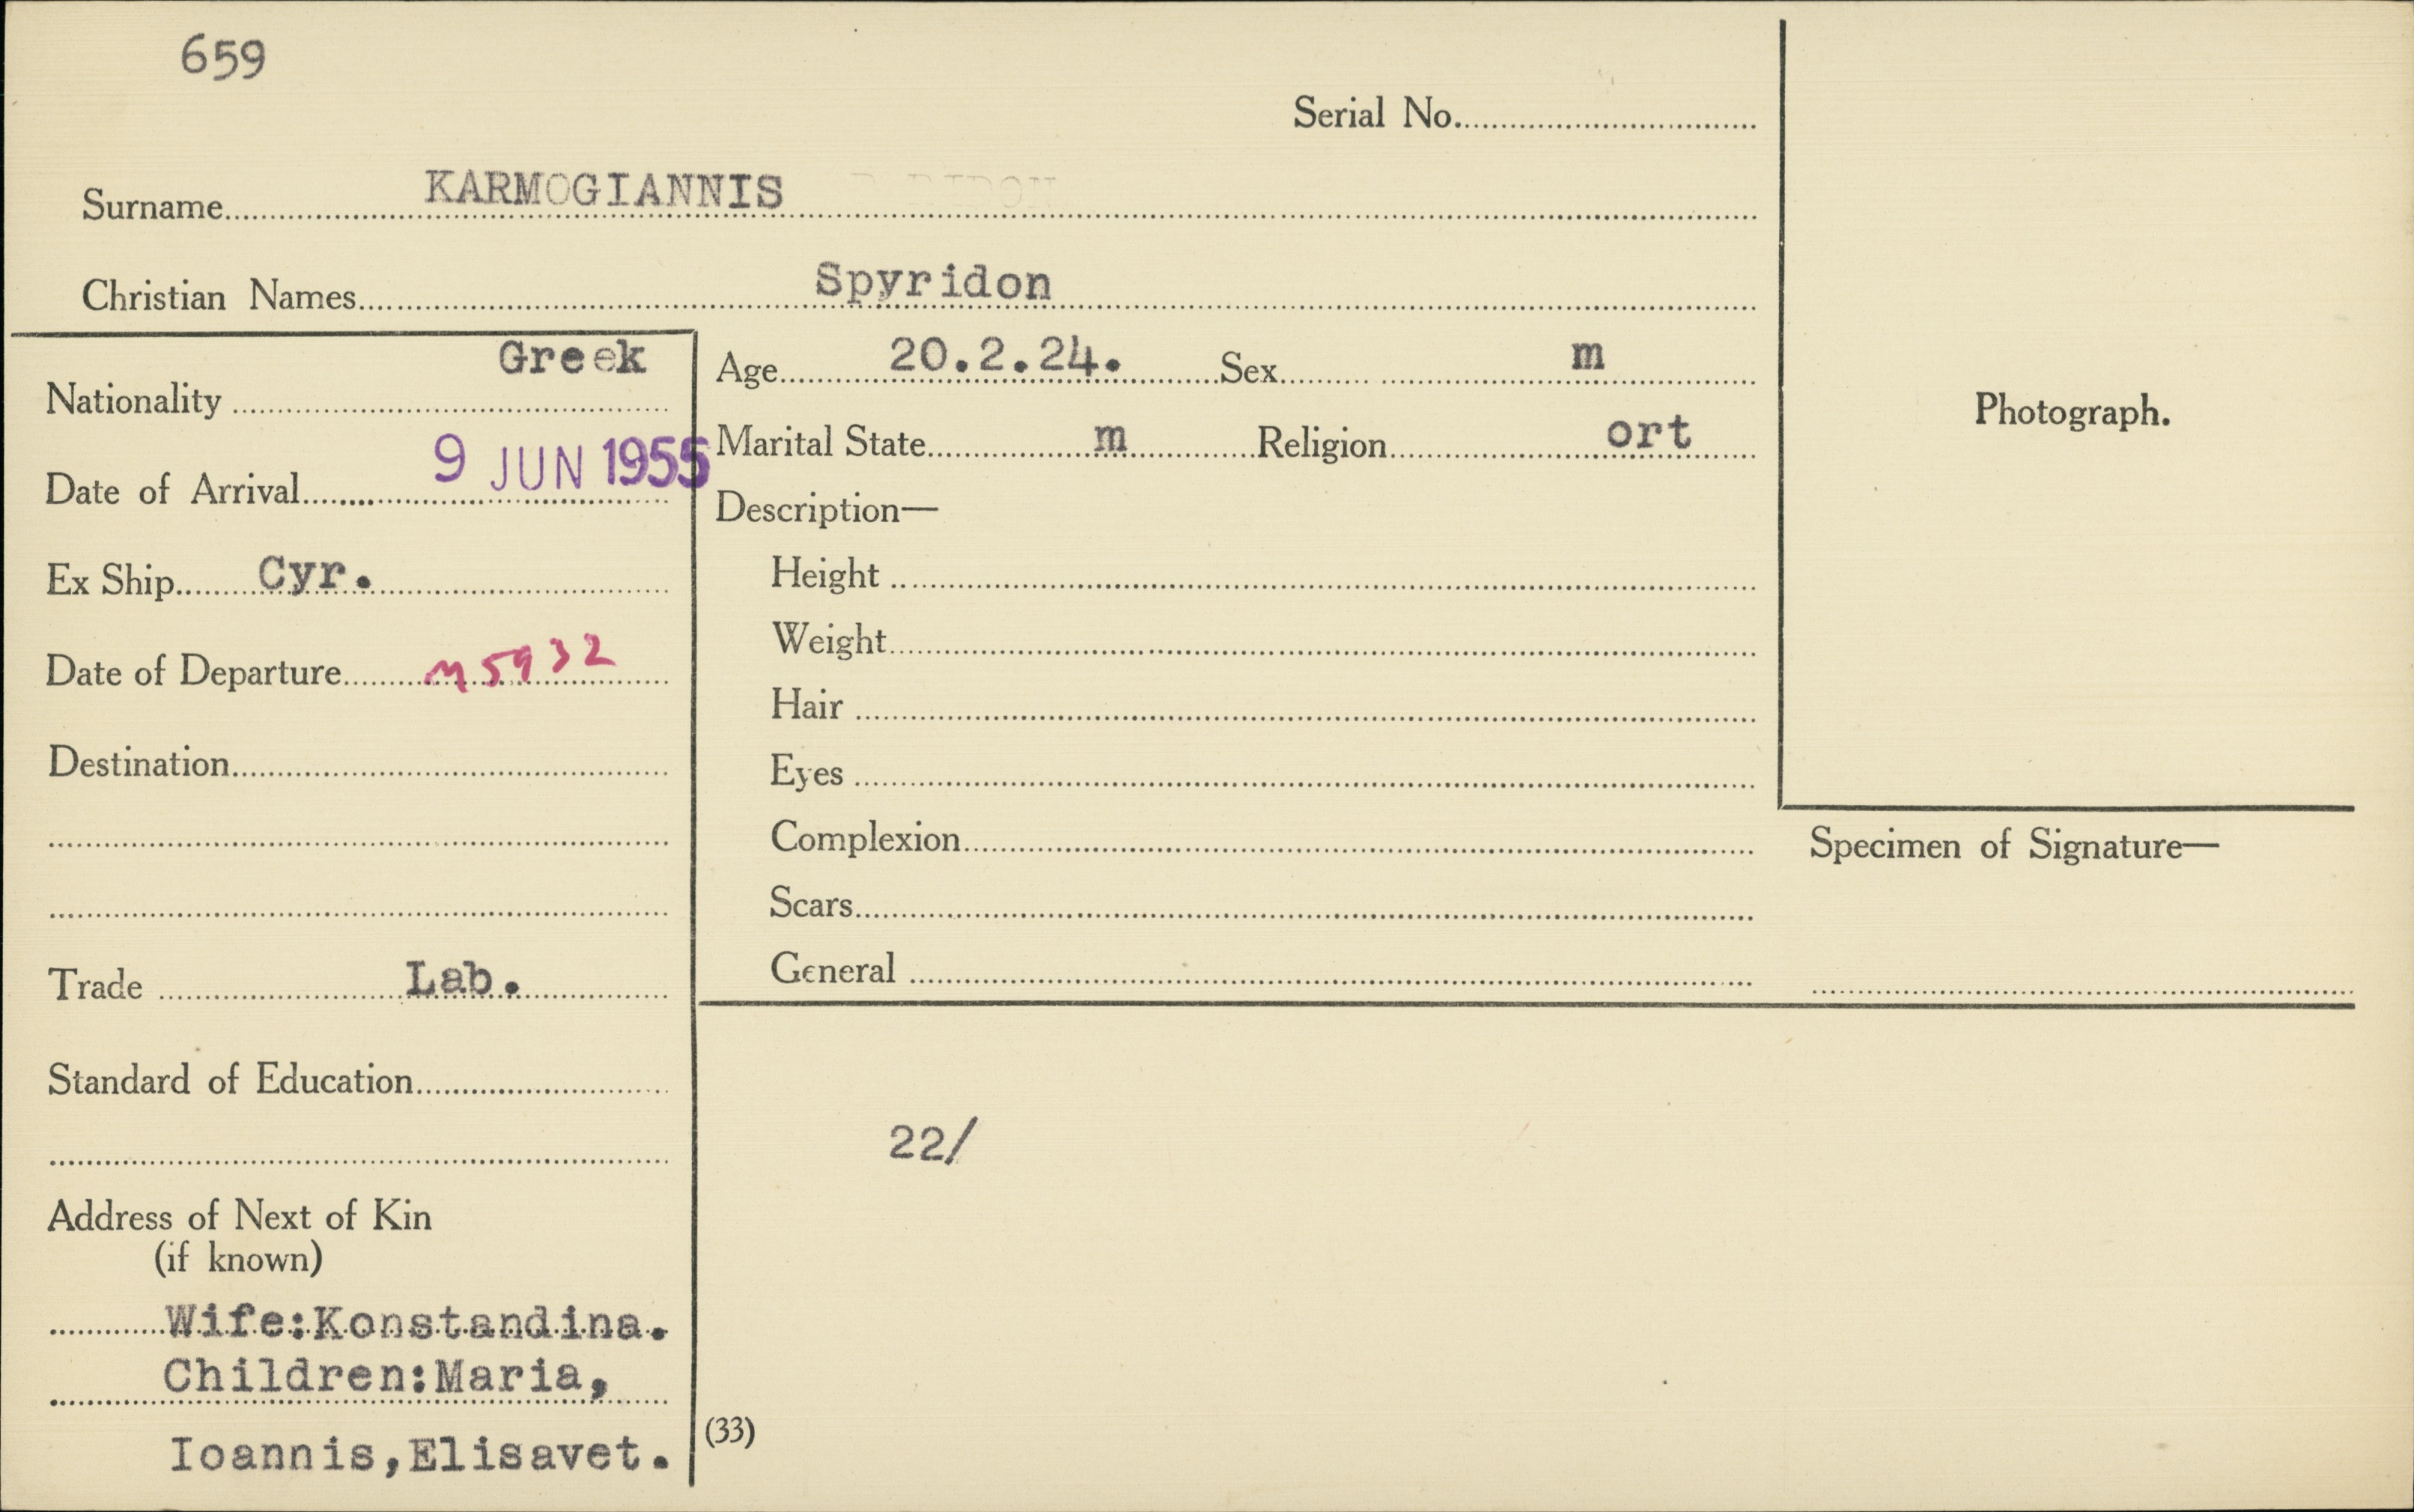 659
Serial No.
Surname KARMOGIANNIS
Christian Names Spyridon
Nationality Greek
Date of Arrival 9 JUN 1955
Ex Ship Cyr.
Date of Departure M5932
Destination
Trade Lab.
Standard of Education
Address of Next of Kin
(if known)
Wife:Konstandina.
Children:Maria,
Ioannis,Elisavet.
Age 20.2.24. Sex m
Marital State m Religion ort
Description—
Height
Weight
Hair
Eyes
Complexion
Scars
General
22/
(33)
Photograph.
Specimen of Signature—